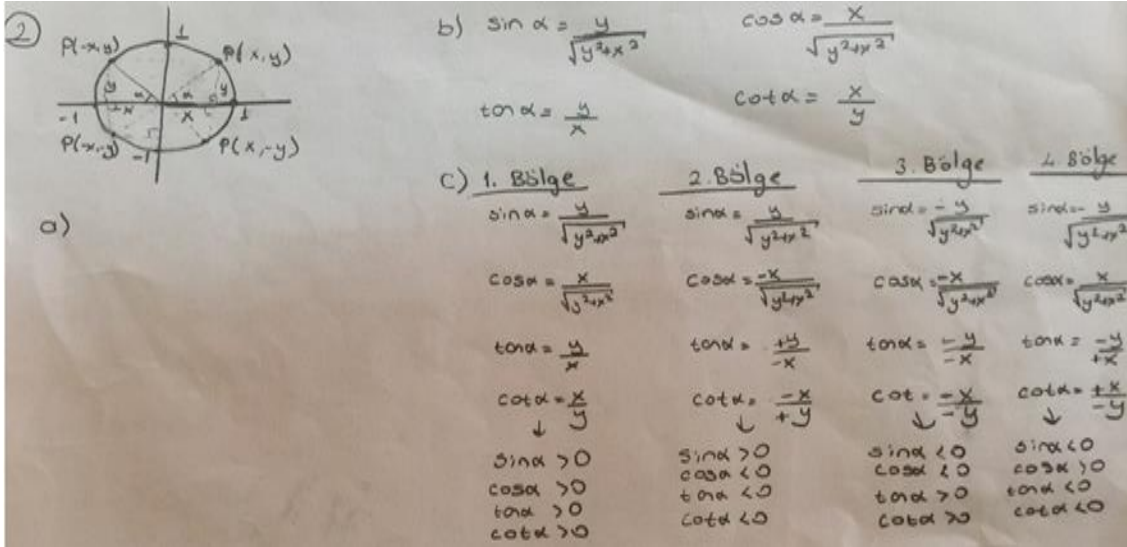 2
1
P(-x,y)
P(x,y)
y α α y
-x x
-1 1
P(-x,-y)
-1
P(x,-y)
a)
b) sin α = y/√y²+x²
cos α = x/√y²+x²
tan α = y/x
cot α = x/y
c) 1. Bölge
sin α = y/√y²+x²
cos α = x/√y²+x²
tan α = y/x
cot α = x/y
↓
sin α > 0
cos α > 0
tan α > 0
cot α > 0
2. Bölge
sin α = y/√y²+x²
cos α = -x/√y²+x²
tan α = +y/-x
cot α = -x/+y
↓
sin α > 0
cos α < 0
tan α < 0
cot α < 0
3. Bölge
sin α = -y/√y²+x²
cos α = -x/√y²+x²
tan α = -y/-x
cot = -x/-y
↓
sin α < 0
cos α < 0
tan α > 0
cot α > 0
4. Bölge
sin α = -y/√y²+x²
cos α = x/√y²+x²
tan α = -y/+x
cot α = +x/-y
↓
sin α < 0
cos α > 0
tan α < 0
cot α < 0